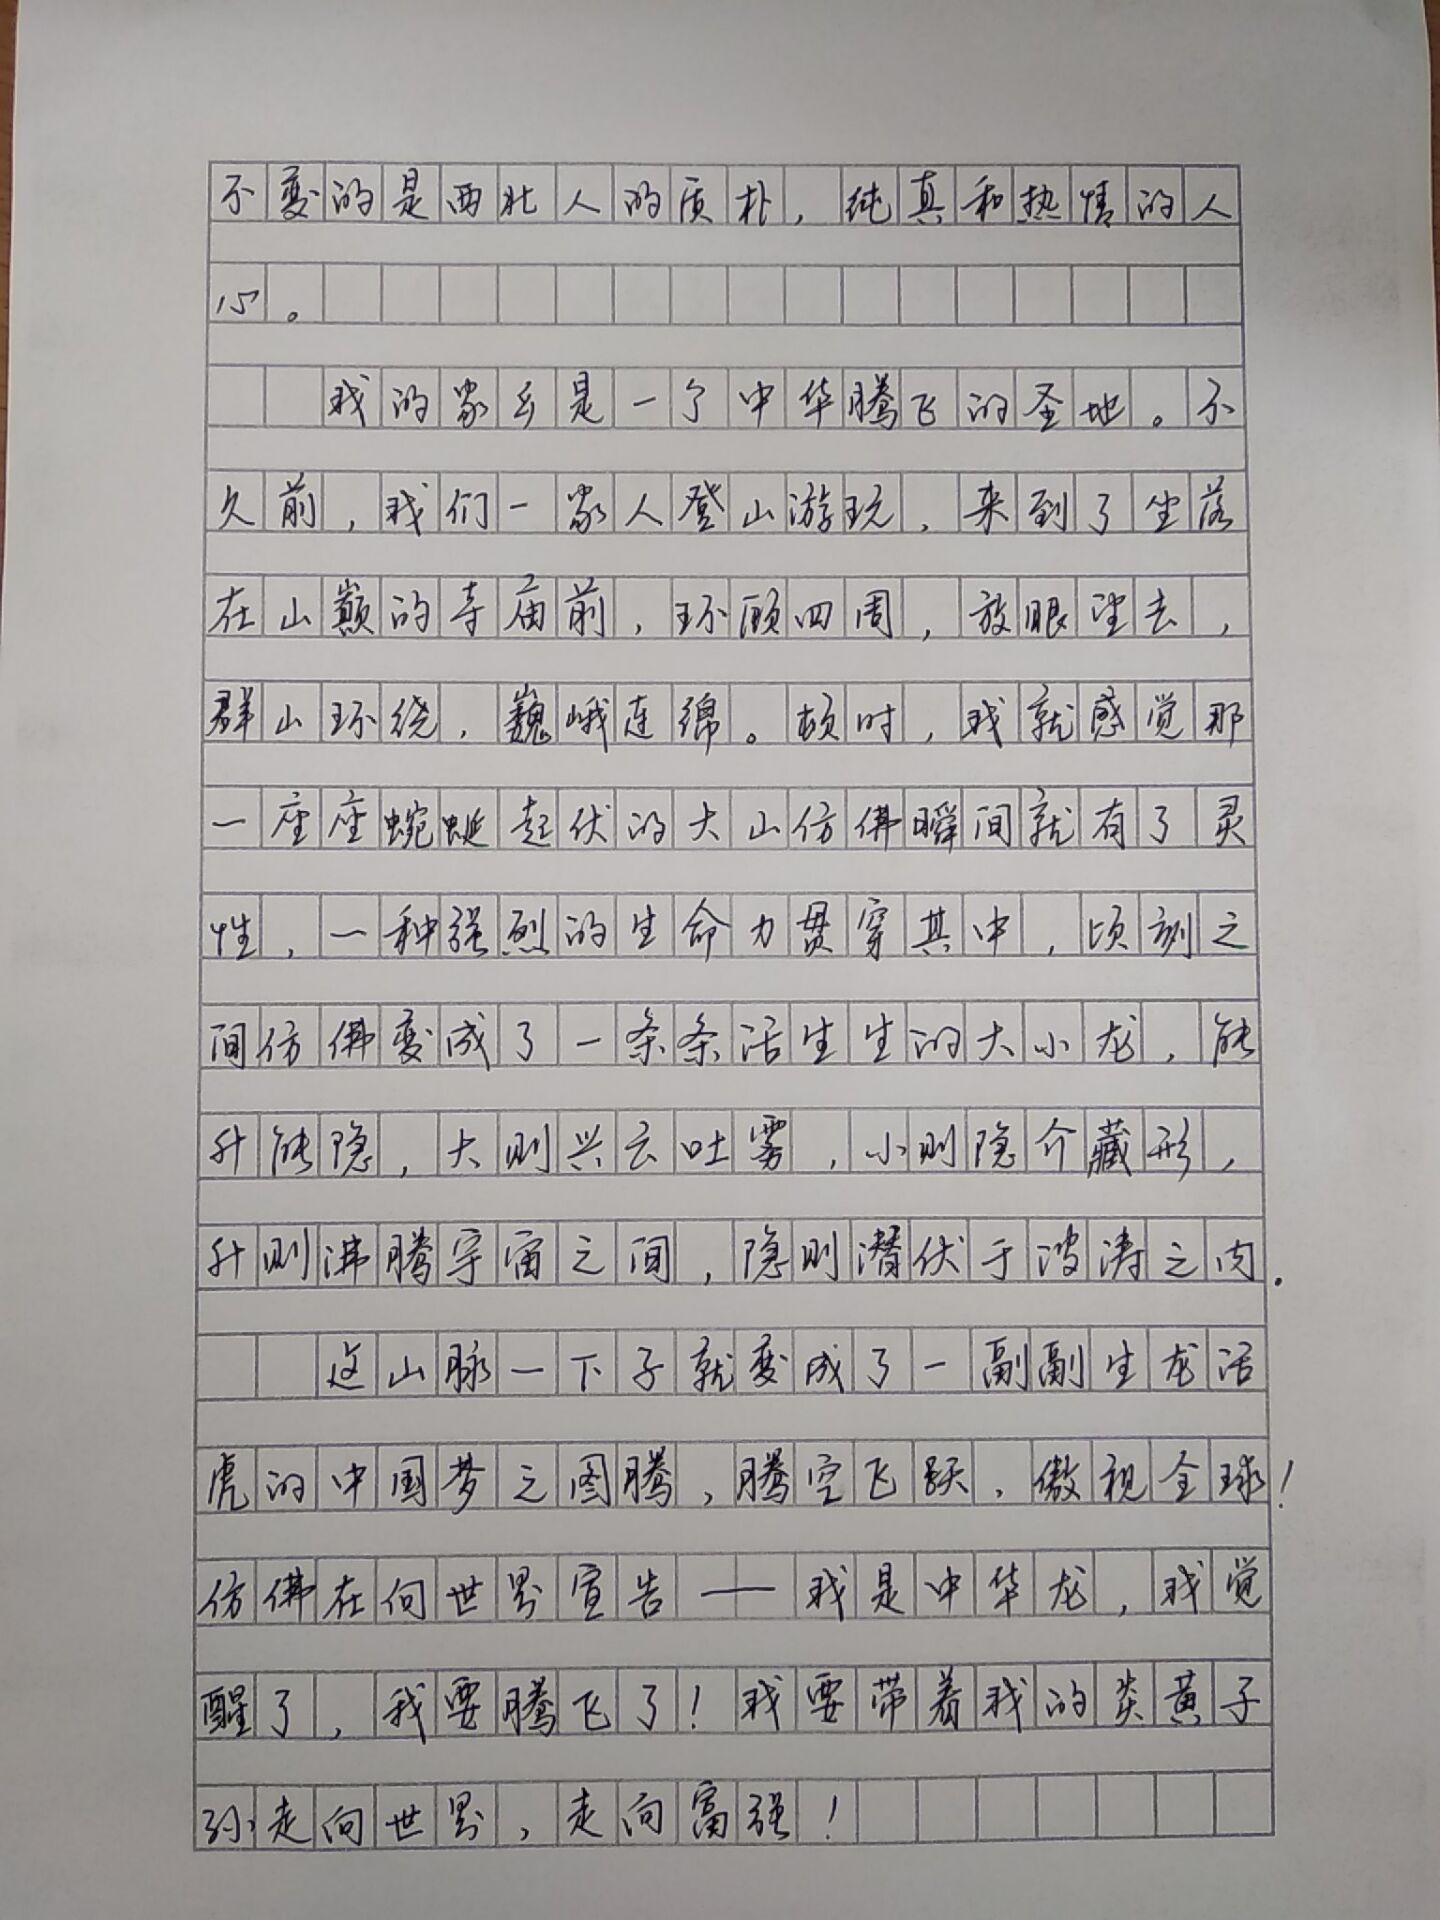 不变的是西北人的质朴,纯真和热情的人
心。
我的家乡是一个中华腾飞的圣地。不
久前,我们一家人登山游玩,来到了坐落
在山巅的寺庙前,环顾四周,放眼望去,
群山环绕,巍峨连绵。顿时,我就感觉那
一座座蜿蜒起伏的大山仿佛瞬间就有了灵
性,一种强烈的生命力贯穿其中,顷刻之
间仿佛变成了一条条活生生的大小龙,能
升能隐,大则兴云吐雾,小则隐介藏形,
升则沸腾宇宙之间,隐则潜伏于波涛之内.
这山脉一下子就变成了一副副生龙活
虎的中国梦之图腾,腾空飞跃,傲视全球!
仿佛在向世界宣告——我是中华龙,我觉
醒了,我要腾飞了!我要带着我的炎黄子
孙走向世界,走向富强!